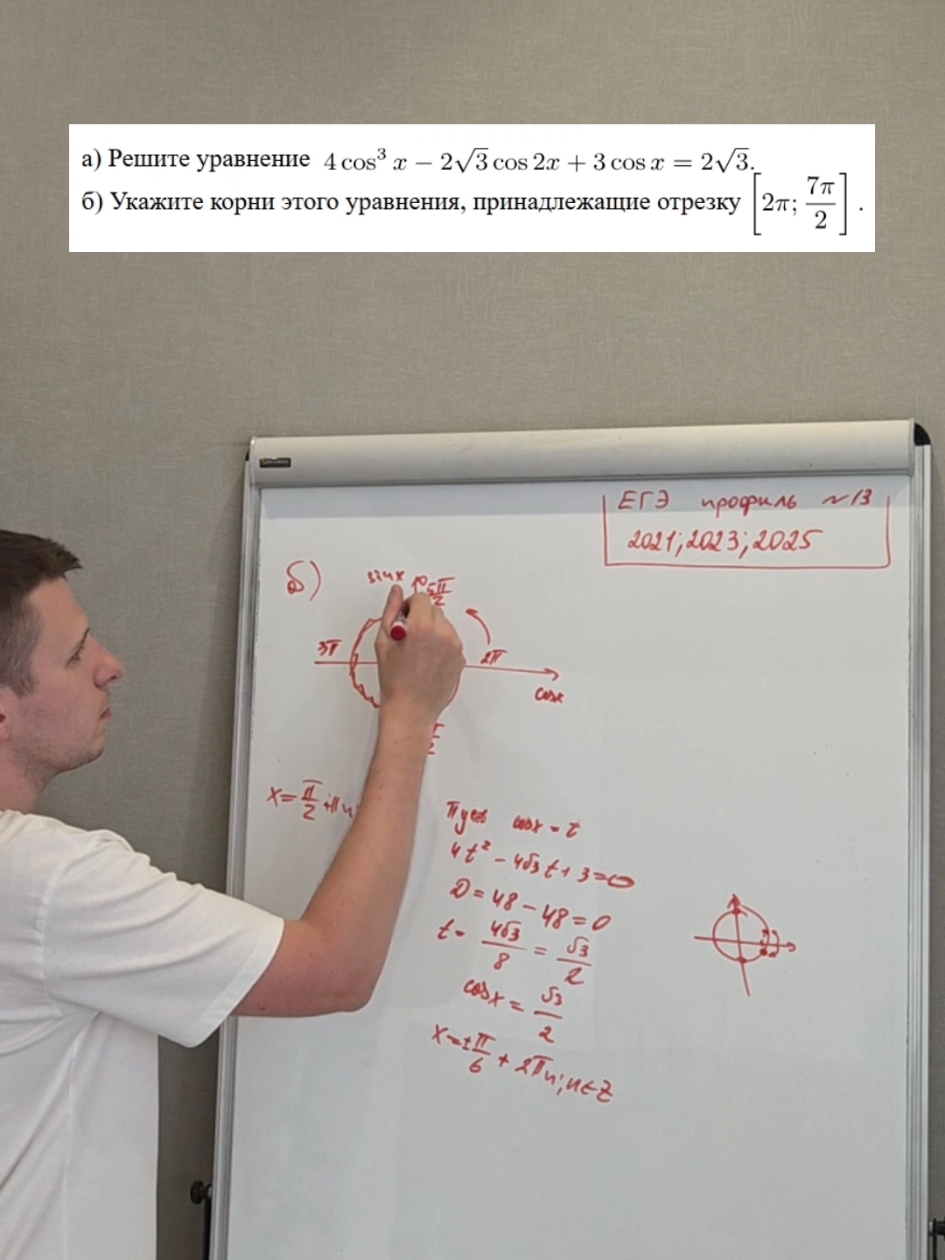 а) Решите уравнение 4 cos³ x − 2√3 cos 2x + 3 cos x = 2√3.
б) Укажите корни этого уравнения, принадлежащие отрезку [2π; 7π/2].
ЕГЭ профиль №13
2021; 2023; 2025
б)
sinx
5π/2
3π
2π
cosx
x = π/2 + πn
Пусть cosx = t
4t² − 4√3 t + 3 = 0
D = 48 − 48 = 0
t = 4√3/8 = √3/2
cosx = √3/2
x = ± π/6 + 2πn; n ∈ Z